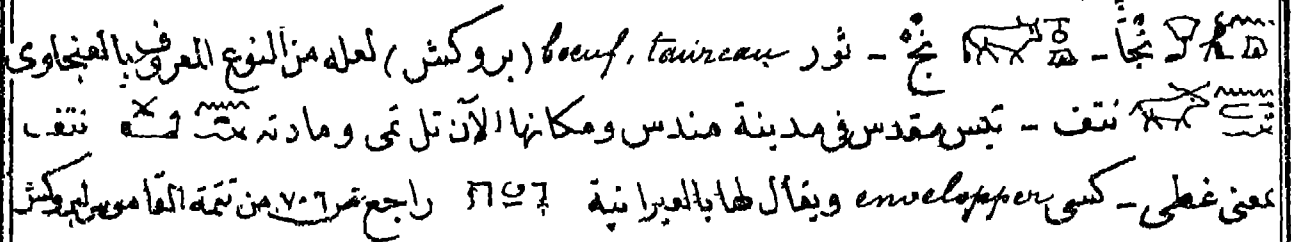 نُجَأ - نُجْ - ثور boeuf, taureau (بروكش) لعله من النوع المعروف بالعنجاوى
نتف - تيس مقدس فى مدينة مندس ومكانها الآن تل تمى ومادته نتف
بمعنى غطى - كسى envelopper ويقال لها بالعبرانية راجع ص ٧٠٦ من تتمة القاموس لبروكش